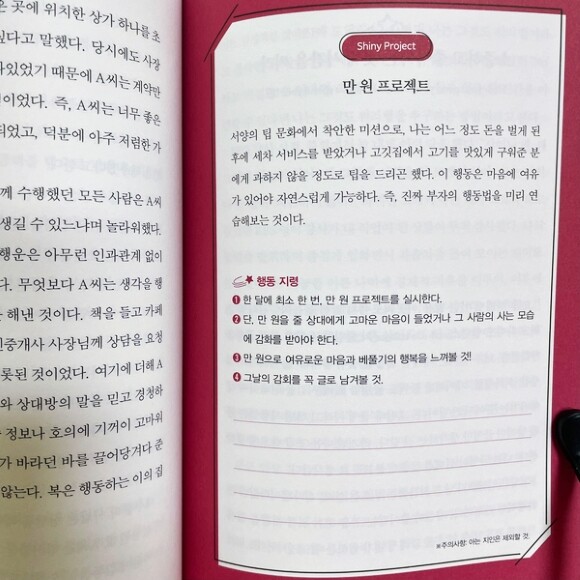 은 곳에 위치한 상가 하나를 초
싶다고 말했다. 당시에도 사장
나있었기 때문에 A씨는 계약만
이었다. 즉, A씨는 너무 좋은
되었고, 덕분에 아주 저렴한 가
께 수행했던 모든 사람은 A씨
생길 수 있느냐며 놀라워했다.
행운은 아무런 인과관계 없이
다. 무엇보다 A씨는 생각을 행
해낸 것이었다. 책을 들고 카페
인중개사 사장님께 상담을 요청
롯된 것이었다. 여기에 더해 A
와 상대방의 말을 믿고 경청하
정보나 호의에 기꺼이 고마워
가 바라던 바를 끌어당겨다 준
않는다. 복은 행동하는 이의 집
Shiny Project
만 원 프로젝트
서양의 팁 문화에서 착안한 미션으로, 나는 어느 정도 돈을 벌게 된
후에 세차 서비스를 받았거나 고깃집에서 고기를 맛있게 구워준 분
에게 과하지 않을 정도로 팁을 드리곤 했다. 이 행동은 마음에 여유
가 있어야 자연스럽게 가능하다. 즉, 진짜 부자의 행동법을 미리 연
습해보는 것이다.
행동 지령
❶ 한 달에 최소 한 번, 만 원 프로젝트를 실시한다.
❷ 단, 만 원을 줄 상대에게 고마운 마음이 들었거나 그 사람의 사는 모습
에 감화를 받아야 한다.
❸ 만 원으로 여유로운 마음과 베풀기의 행복을 느껴볼 것!
❹ 그날의 감회를 꼭 글로 남겨볼 것.
※주의사항: 아는 지인은 제외할 것.